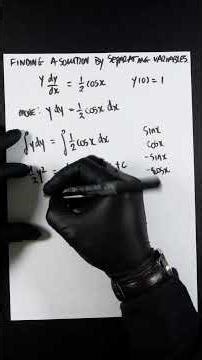 FINDING A SOLUTION BY SEPARATING VARIABLES
y dy/dx = 1/2 cosx y(0) = 1
move: y dy = 1/2 cosx dx
∫ y dy = ∫ 1/2 cosx dx
1/2 y² = + c
sinx
cosx
-sinx
-cosx